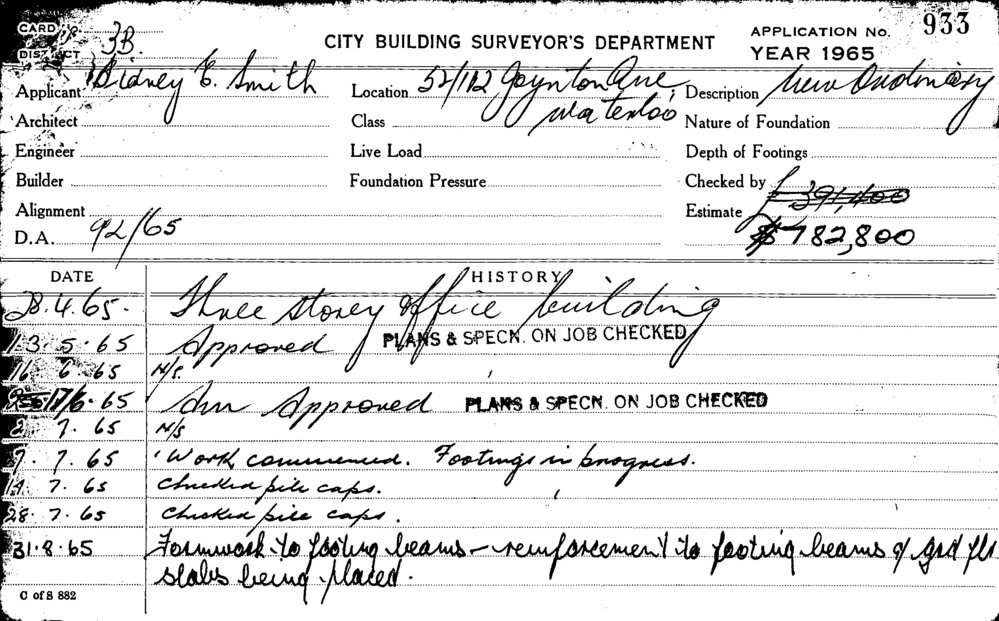 CARD 18. 3B. CITY BUILDING SURVEYOR'S DEPARTMENT APPLICATION No. 933
DISTRICT YEAR 1965
Applicant Sidney E. Smith Location 52/112 Joynton Ave, Description New Ordinary
Architect Class Waterloo Nature of Foundation
Engineer Live Load Depth of Footings
Builder Foundation Pressure Checked by
Alignment Estimate £391,400
D.A. 92/65 $782,800
DATE HISTORY
28.4.65. Three storey office building
13.5.65 Approved PLANS & SPECN. ON JOB CHECKED
16 6 65 N/S.
17/6.65 Am Approved PLANS & SPECN. ON JOB CHECKED
2. 7. 65 N/S
7. 7. 65 Work commenced. Footings in progress.
7. 65 Checked pile caps.
28. 7. 65 Checked pile caps.
31.8.65 Formwork to footing beams – reinforcement to footing beams & grd flr
slabs being placed.
C of S 882